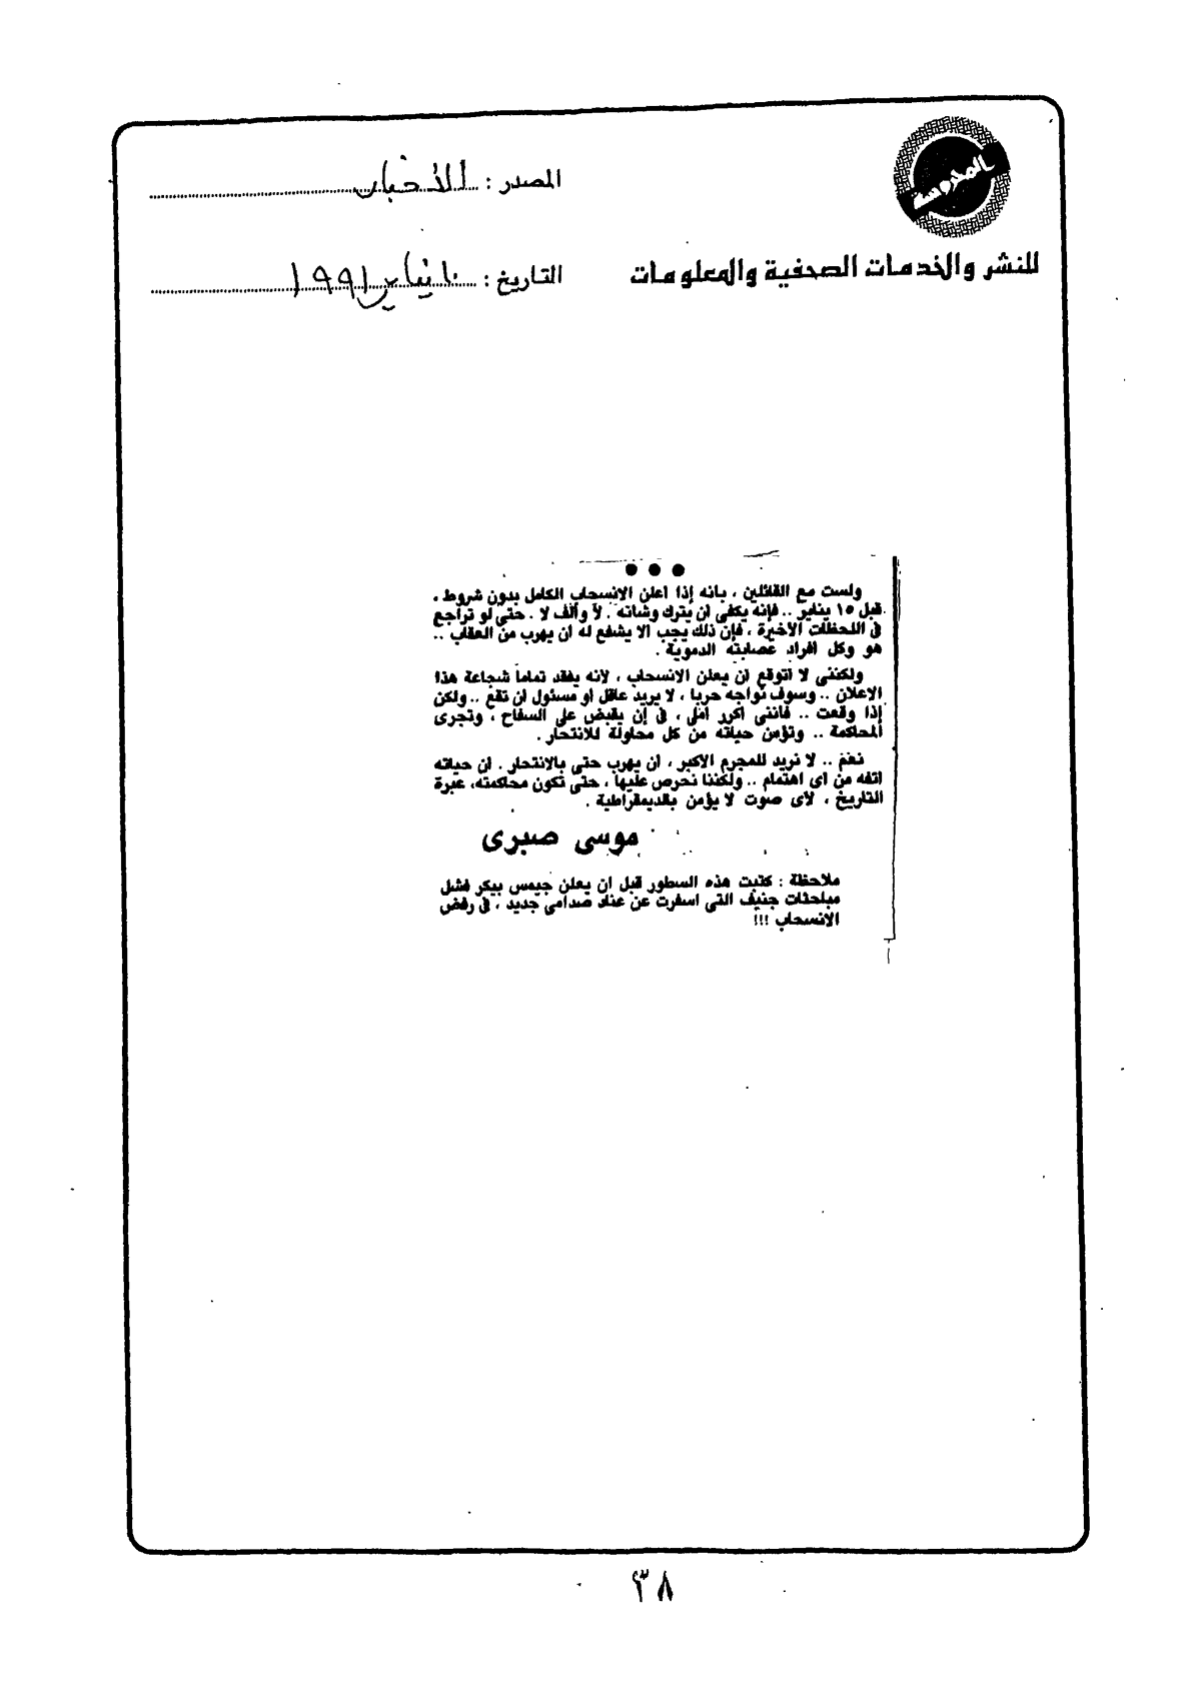 المدرسة
للنشر والخدمات الصحفية والمعلومات
المصدر : الأخبار
التاريخ : ١٠ يناير ١٩٩١
ولست مع القائلين ، بانه إذا اعلن الانسحاب الكامل بدون شروط ،
قبل ١٥ يناير .. فإنه يكفى ان يترك وشانه . لا والف لا . حتى لو تراجع
فى اللحظات الاخيرة ، فإن ذلك يجب الا يشفع له ان يهرب من العقاب ..
هو وكل افراد عصابته الدموية .
ولكننى لا اتوقع ان يعلن الانسحاب ، لانه يفقد تماما شجاعة هذا
الاعلان .. وسوف نواجه حربا ، لا يريد عاقل او مسئول ان تقع .. ولكن
إذا وقعت .. فاننى اكرر املى ، فى إن يقبض على السفاح ، وتجرى
المحاكمة .. وتؤمن حياته من كل محاولة للانتحار .
نعم .. لا نريد للمجرم الاكبر ، ان يهرب حتى بالانتحار . ان حياته
اتفه من اى اهتمام .. ولكننا نحرص عليها ، حتى تكون محاكمته، عبرة
التاريخ ، لاى صوت لا يؤمن بالديمقراطية .
موسى صبرى
ملاحظة : كتبت هذه السطور قبل ان يعلن جيمس بيكر فشل
مباحثات جنيف التى اسفرت عن عناد صدامى جديد ، فى رفض
الانسحاب !!!
٣٨